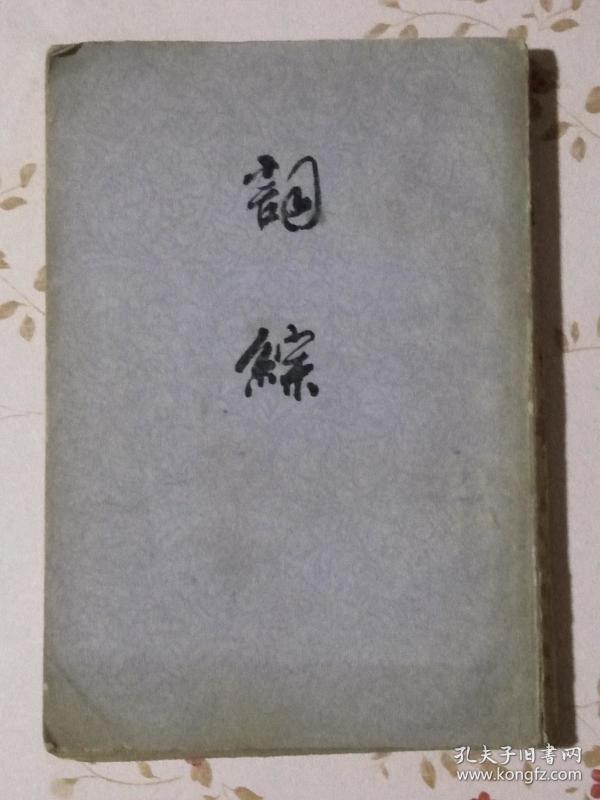 詞
綜
孔夫子旧書网
www.kongfz.com